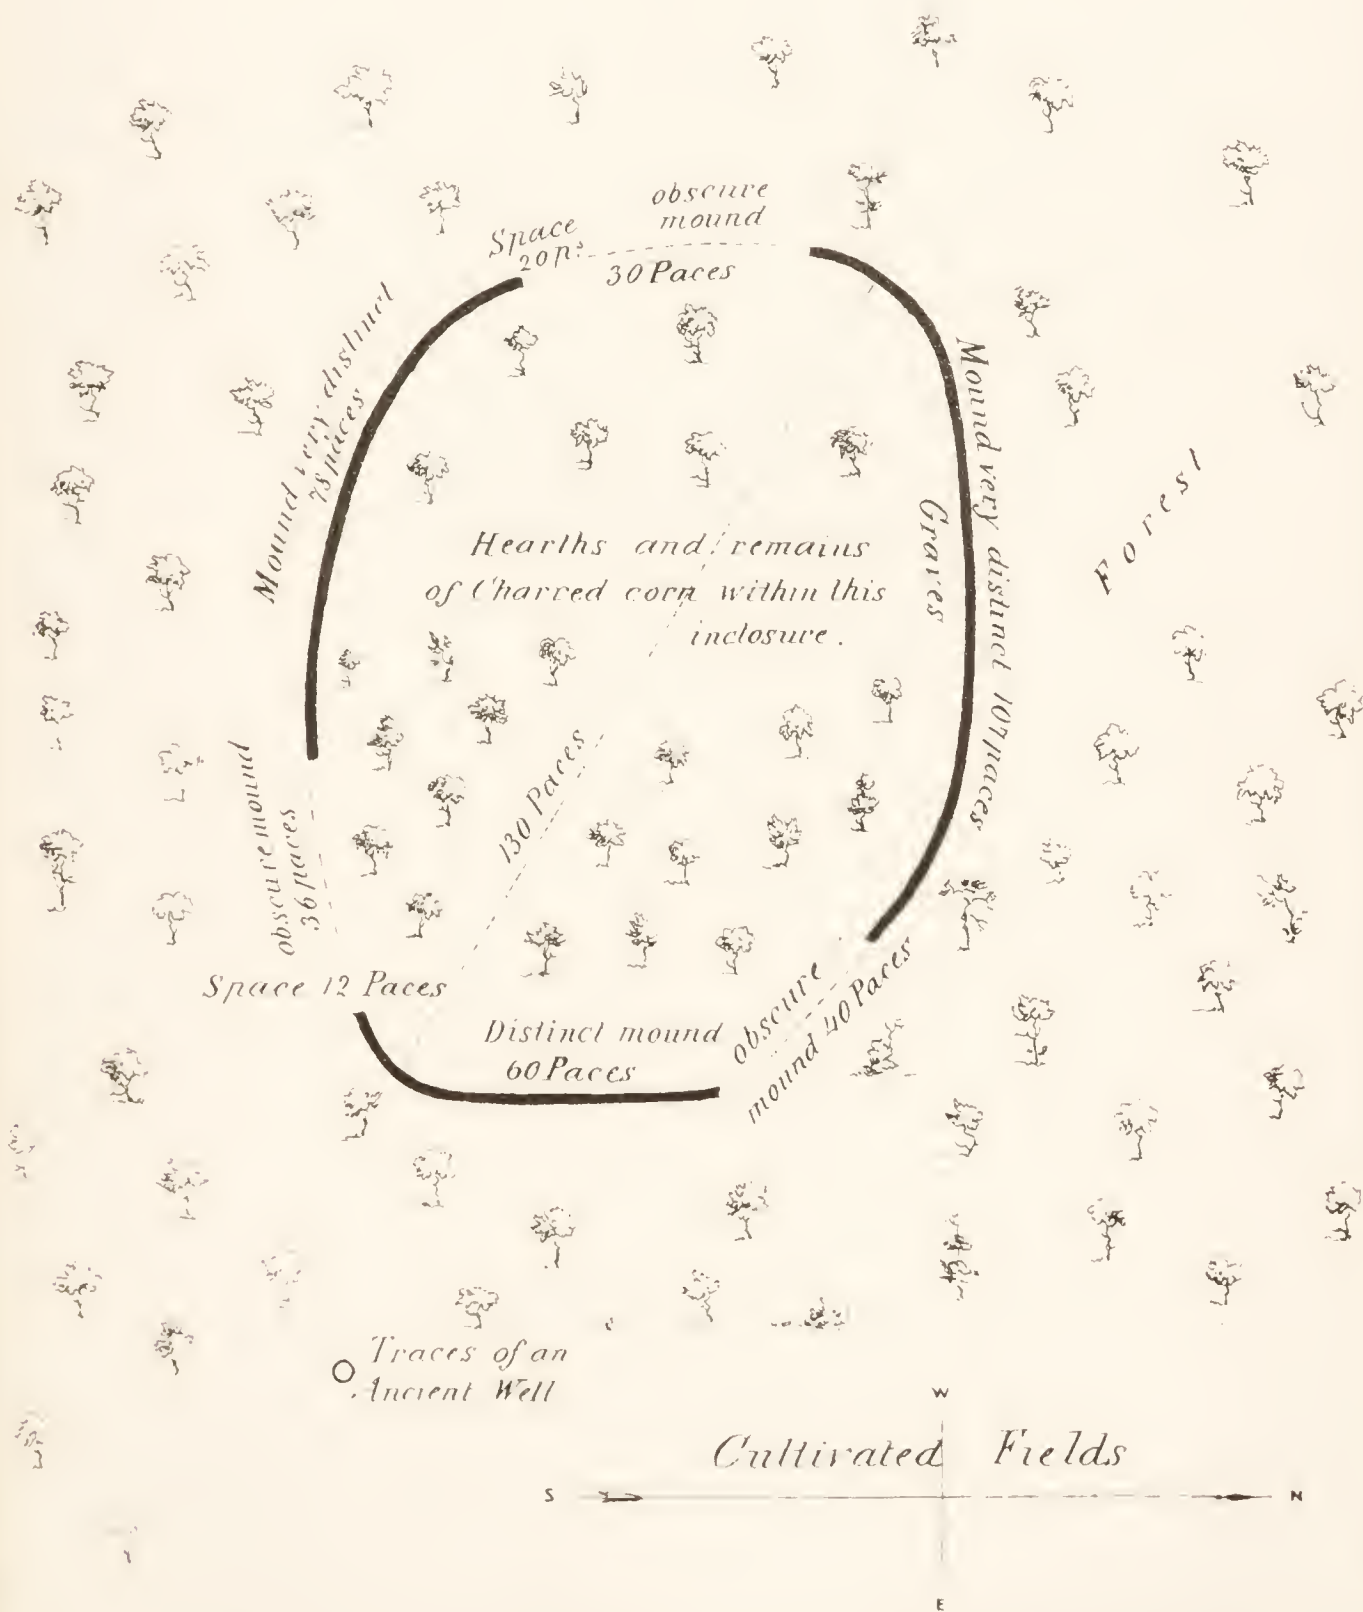 obscure
mound
Space
20 ps
30 Paces
Mound very distinct
78 paces
Mound very distinct 107 paces
Graves
Forest
Hearths and remains
of Charred corn within this
inclosure.
130 Paces
obscure mound
36 paces
Space 12 Paces
Distinct mound
60 Paces
obscure
mound 40 Paces
Traces of an
Ancient Well
W
Cultivated Fields
S
N
E